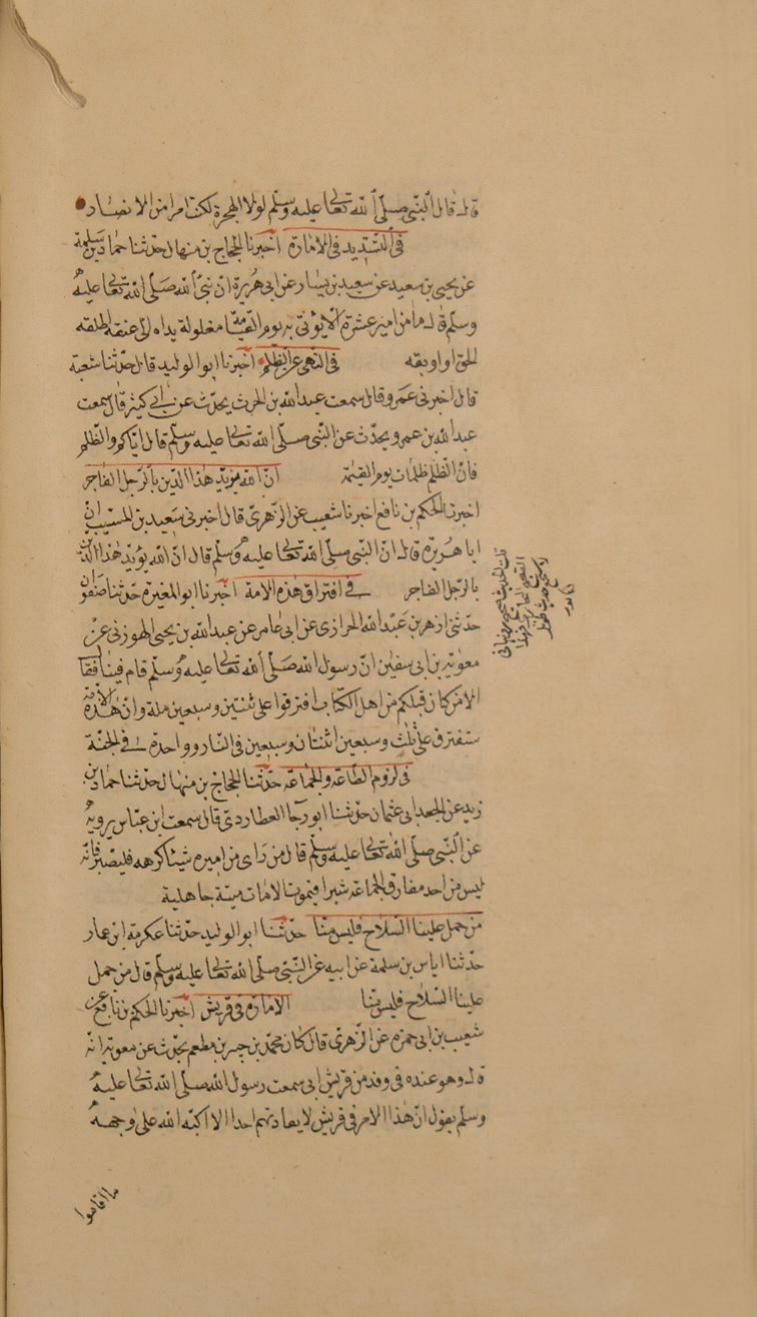 قال قال النبي صلى الله تعالى عليه وسلم لولا الهجرة لكنت امرا من الانصار
في التشديد في الامارة اخبرنا الحجاج بن منهال حدثنا حماد بن سلمة
عن يحيى بن سعيد عن سعيد بن يسار عن ابى هريرة ان نبى الله صلى الله تعالى عليه
وسلم قال ما من امير عشرة الا يؤتى به يوم القيمة مغلولة يداه الى عنقه اطلقه
الحق او اوبقه في النهى عن الظلم اخبرنا ابو الوليد قال حدثنا شعبة
قال اخبرنى عمرو قال سمعت عبد الله بن الحرث يحدث عن ابى كثير قال سمعت
عبد الله بن عمرو يحدث عن النبى صلى الله تعالى عليه وسلم قال اياكم والظلم
فان الظلم ظلمات يوم القيمة ان الله يؤيد هذا الدين بالرجل الفاجر
اخبرنا الحكم بن نافع اخبرنا شعيب عن الزهرى قال اخبرنى سعيد بن المسيب ان
ابا هريرة قال ان النبى صلى الله تعالى عليه وسلم قال ان الله يؤيد هذا الدين
بالرجل الفاجر في افتراق هذه الامة اخبرنا ابو المغيرة حدثنا صفوان
حدثنى ازهر بن عبد الله الحرازى عن ابى عامر عن عبد الله بن يحيى الهوزنى عن
معوية بن ابى سفين ان رسول الله صلى الله تعالى عليه وسلم قام فينا فقال
الا من كان قبلكم من اهل الكتاب افترقوا على ثنتين وسبعين ملة وان هذه الامة
ستفترق على ثلث وسبعين اثنتان وسبعين في النار وواحدة في الجنة
في لزوم الطاعة والجماعة حدثنا الحجاج بن منهال حدثنا حماد بن
زيد عن الجعد ابى عثمان حدثنا ابو رجا العطاردى قال سمعت ابن عباس يرويه
عن النبى صلى الله تعالى عليه وسلم قال من راى من اميره شيئا كرهه فليصبر فانه
ليس من احد مفارق الجماعة شبرا فيموت الا مات ميتة جاهلية
من حمل علينا السلاح فليس منا حدثنا ابو الوليد حدثنا عكرمة ابن عمار
حدثنا اياس بن سلمة عن ابيه عن النبى صلى الله تعالى عليه وسلم قال من حمل
علينا السلاح فليس منا الامارة في قريش اخبرنا الحكم بن نافع عن
شعيب بن ابى حمزة عن الزهرى قال كان محمد بن جبير بن مطعم يحدث عن معوية انه
قال وهو عنده في وفد من قريش انى سمعت رسول الله صلى الله تعالى عليه
وسلم يقول ان هذا الامر في قريش لا يعاديهم احد الا اكبه الله على وجهه
ما اقاموا